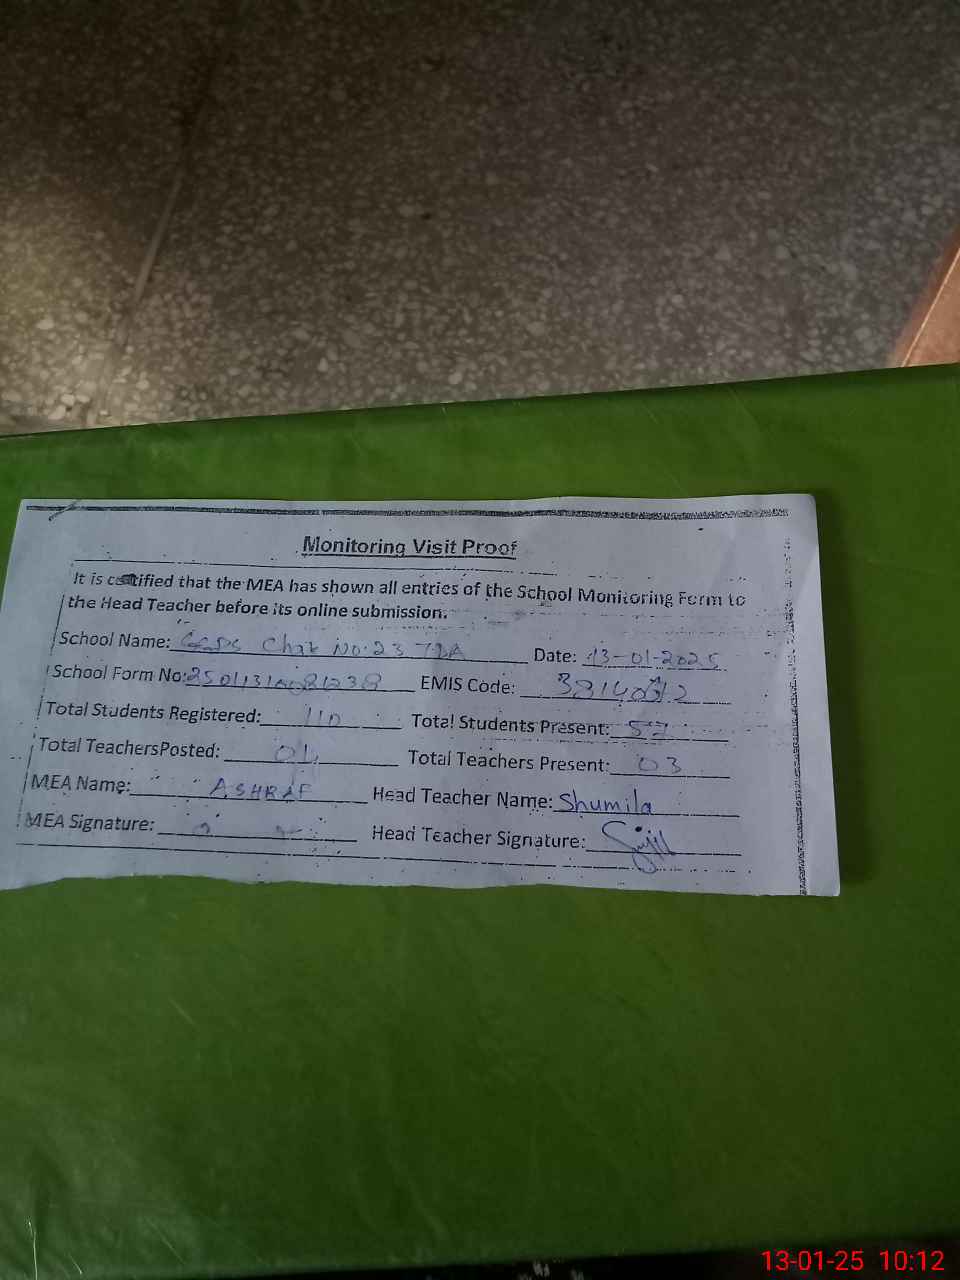 Monitoring Visit Proof
It is certified that the MEA has shown all entries of the School Monitoring Form to
the Head Teacher before its online submission.
School Name: Chak No: 23 TDA Date: 13-01-2025
School Form No: EMIS Code:
Total Students Registered: 110 Total Students Present: 57
Total Teachers Posted: Total Teachers Present: 03
MEA Name: ASHRAF Head Teacher Name: Shumila
MEA Signature: Head Teacher Signature:
13-01-25 10:12